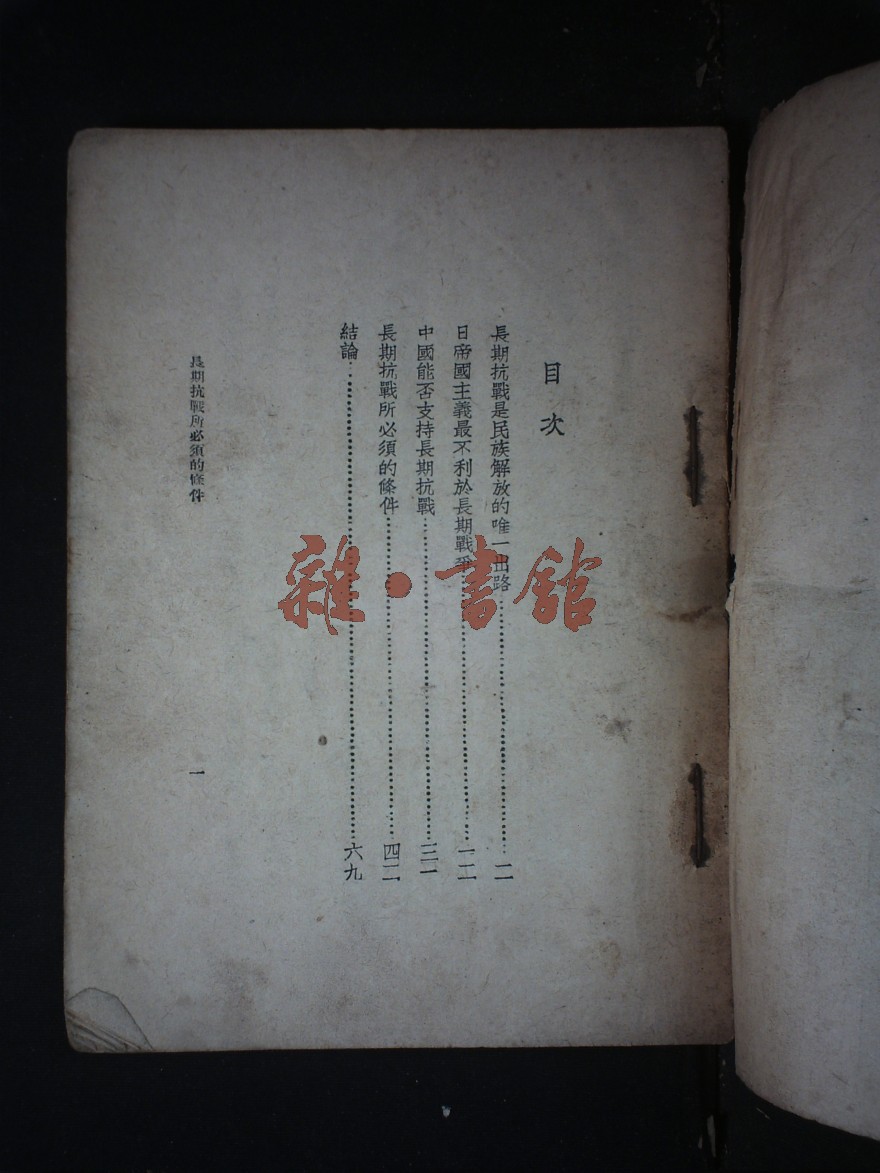 目次
長期抗戰是民族解放的唯一出路……二
日帝國主義最不利於長期戰爭……一二
中國能否支持長期抗戰……三一
長期抗戰所必須的條件……四二
結論……六九
長期抗戰所必須的條件
一
雜·書館